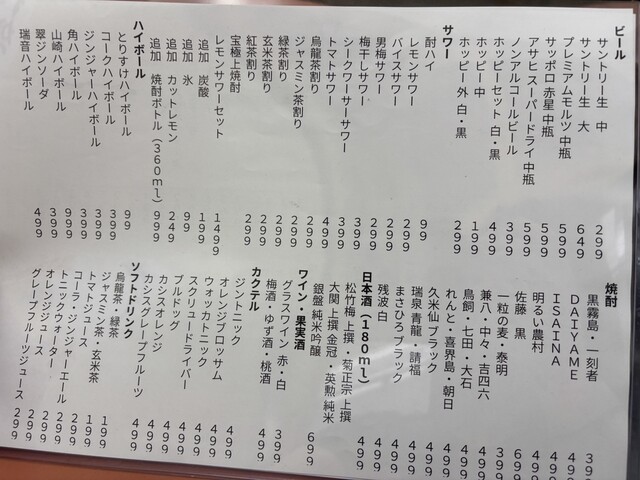 ビール
サントリー生 中 299
サントリー生 大 649
プレミアムモルツ 中瓶 599
サッポロ 赤星 中瓶 599
アサヒスーパードライ 中瓶 599
ノンアルコールビール 399
ホッピーセット 白・黒 499
ホッピー 中 199
ホッピー外 白・黒 299
サワー
酎ハイ 99
レモンサワー 299
バイスサワー 299
男梅サワー 299
梅干しサワー 399
シークワーサーサワー 399
トマトサワー 499
烏龍茶割り 299
ジャスミン茶割り 299
緑茶割り 299
玄米茶割り 299
紅茶割り 299
宝極上焼酎
レモンサワーセット 1499
追加 炭酸 199
追加 氷 99
追加 カットレモン 249
追加 焼酎ボトル(360ml) 999
ハイボール
とりすけハイボール 99
コークハイボール 399
ジンジャーハイボール 399
角ハイボール 399
山崎ハイボール 999
翠ジンソーダ 399
瑞音ハイボール 499
焼酎
黒霧島・一刻者 399
DAIYAME 499
ISAINA 499
明るい農村 499
佐藤 黒 699
一粒の麦・泰明 399
兼八・中々・吉四六 499
鳥飼・七田・大石 499
れんと・喜界島・朝日 499
久米仙 ブラック 499
瑞泉 青龍・請福 499
まさひろ ブラック 499
残波 白 499
日本酒(180ml)
松竹梅 上撰・菊正宗 上撰 499
大関 上撰 金冠・英勲 純米 499
銀盤 純米吟醸 699
ワイン・果実酒
グラスワイン 赤・白 399
梅酒・ゆず酒・桃酒 499
カクテル
ジントニック 499
オレンジブロッサム 499
ウォッカトニック 499
スクリュードライバー 499
ブルドッグ 499
カシスオレンジ 499
カシスグレープフルーツ 499
ソフトドリンク
烏龍茶・緑茶
ジャスミン茶・玄米茶 199
トマトジュース 199
コーラ・ジンジャーエール 299
トニックウォーター 299
オレンジジュース 299
グレープフルーツジュース 299